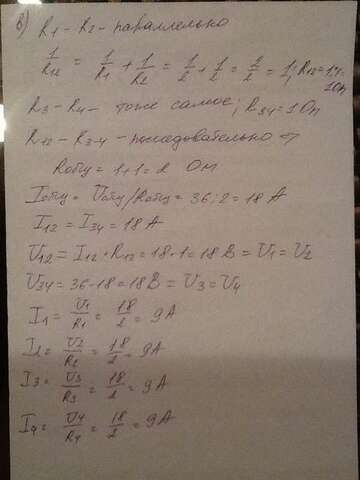 в) R1 - R2 - параллельно
1/R12 = 1/R1 + 1/R2 = 1/2 + 1/2 = 2/2 = 1; R12 = 1/1 = 1 Ом
R3 - R4 - тоже самое; R34 = 1 Ом
R12 - R34 - последовательно
Rобщ = 1+1 = 2 Ом
Iобщ = Uобщ/Rобщ = 36:2 = 18 А
I12 = I34 = 18 А
U12 = I12 * R12 = 18*1 = 18 В = U1 = U2
U34 = 36-18 = 18 В = U3 = U4
I1 = U1/R1 = 18/2 = 9А
I2 = U2/R2 = 18/2 = 9А
I3 = U3/R3 = 18/2 = 9А
I4 = U4/R4 = 18/2 = 9А